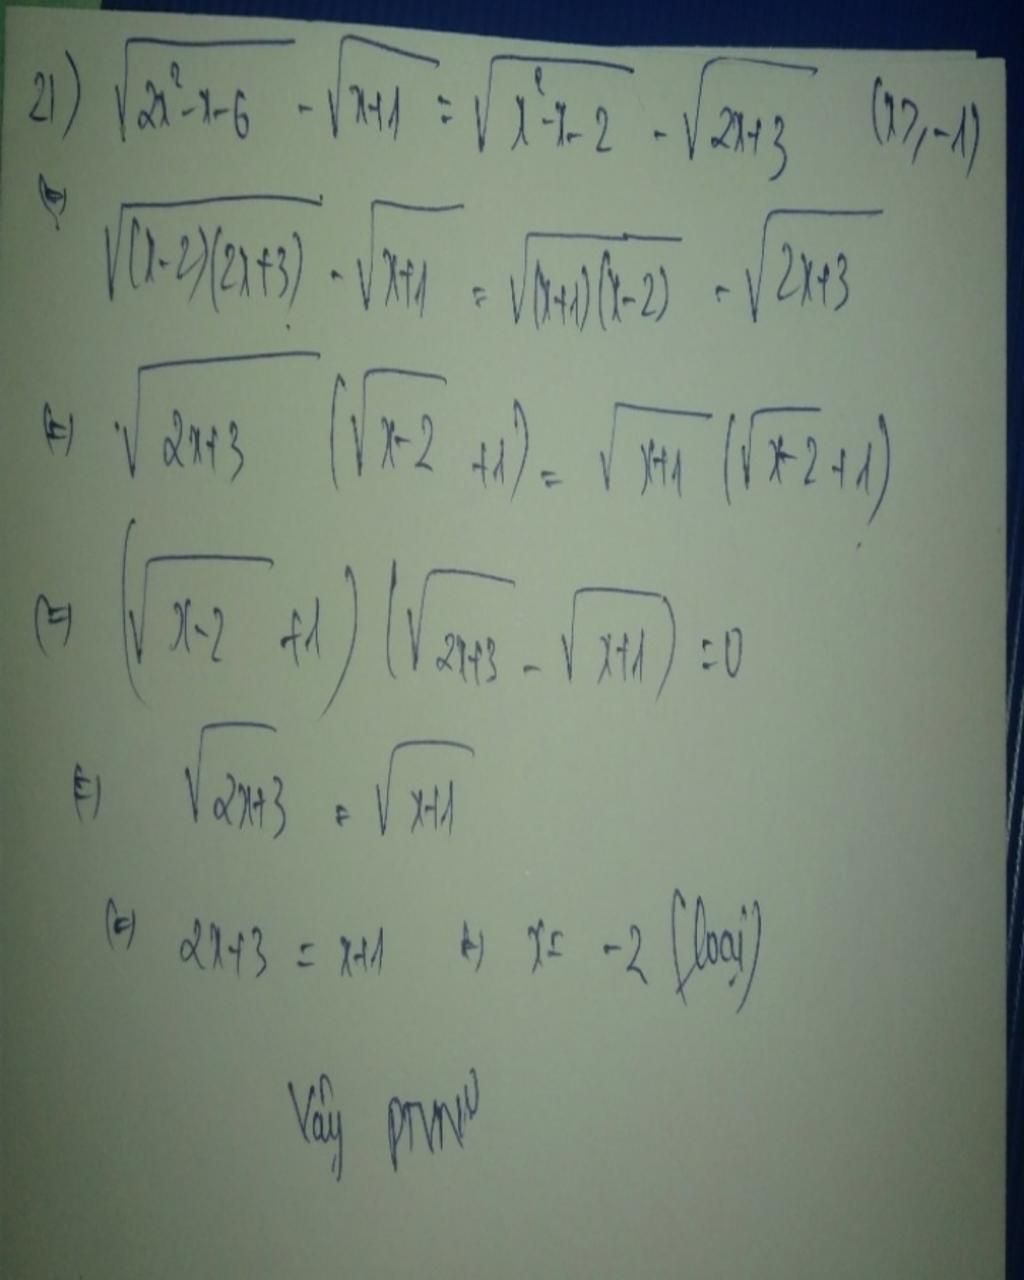 21) √(2x²-x-6) - √(x+1) = √(x²-x-2) - √(2x+3) (x ≥ -1)
⇔ √((x-2)(2x+3)) - √(x+1) = √((x+1)(x-2)) - √(2x+3)
⇔ √(2x+3) (√(x-2) +1) = √(x+1) (√(x-2) +1)
⇔ (√(x-2) +1) (√(2x+3) - √(x+1)) = 0
⇔ √(2x+3) = √(x+1)
⇔ 2x+3 = x+1 ⇔ x = -2 (loại)
Vậy PTVN